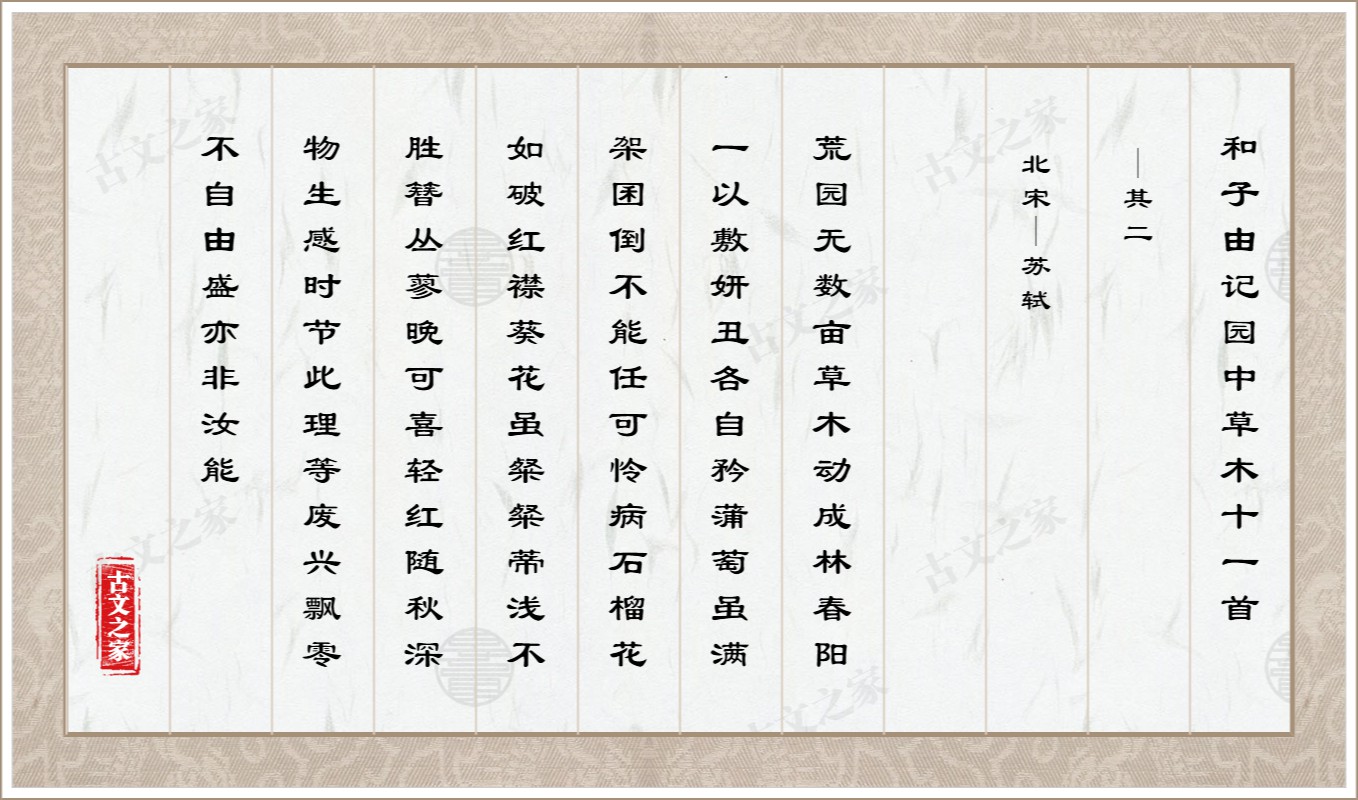 和子由记园中草木十一首
—其二
北宋—苏轼
荒园无数亩草木动成林春阳
一以敷妍丑各自矜蒲萄虽满
架困倒不能任可怜病石榴花
如破红襟葵花虽粲粲蒂浅不
胜簪丛蓼晚可喜轻红随秋深
物生感时节此理等废兴飘零
不自由盛亦非汝能
古文之家